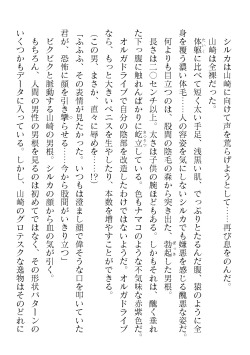 シルカは山崎に向けて声を荒らげようとして……再び息をのんだ。
山崎は全裸だった。
体躯に比べて短く太い手足、浅黒い肌、でっぷりとたるんだ腹、猿のように全
身を覆う濃い体毛……人の容姿を気にしないシルカでも嫌悪を感じる醜悪な裸だ。
何よりも目立つのは、股間の陰毛の森から突き出た、勃起した男根。
長さは二〇センチ以上、太さは子供の腕ほどもある。しかもそれは、醜く垂れ
た下っ腹に触れんばかりに屹立している。色もナマコのような不気味な赤紫色だ。
オルガドライブで自分の陰部を改造したわけではないようだ。オルガドライブ
なら、もっと大きいペニスを生やしたり、本数を増やすことだってできる。
「ふふふ、その表情が見たかった。いつもは澄まし顔で偉そうな口を叩いていた
君が、恐怖に顔を引き攣らせる……今から股間がいきり立つ」
(この男、まさか、直々に辱める……!?)
ビクビクと脈動する山崎の男根、シルカの顔から血の気が引く。
もちろん、人間の男性の男根を見るのは初めてではなく、その形状パターンの
いくつかもデータに入っている。しかし、山崎のグロテスクな逸物はそのどれに